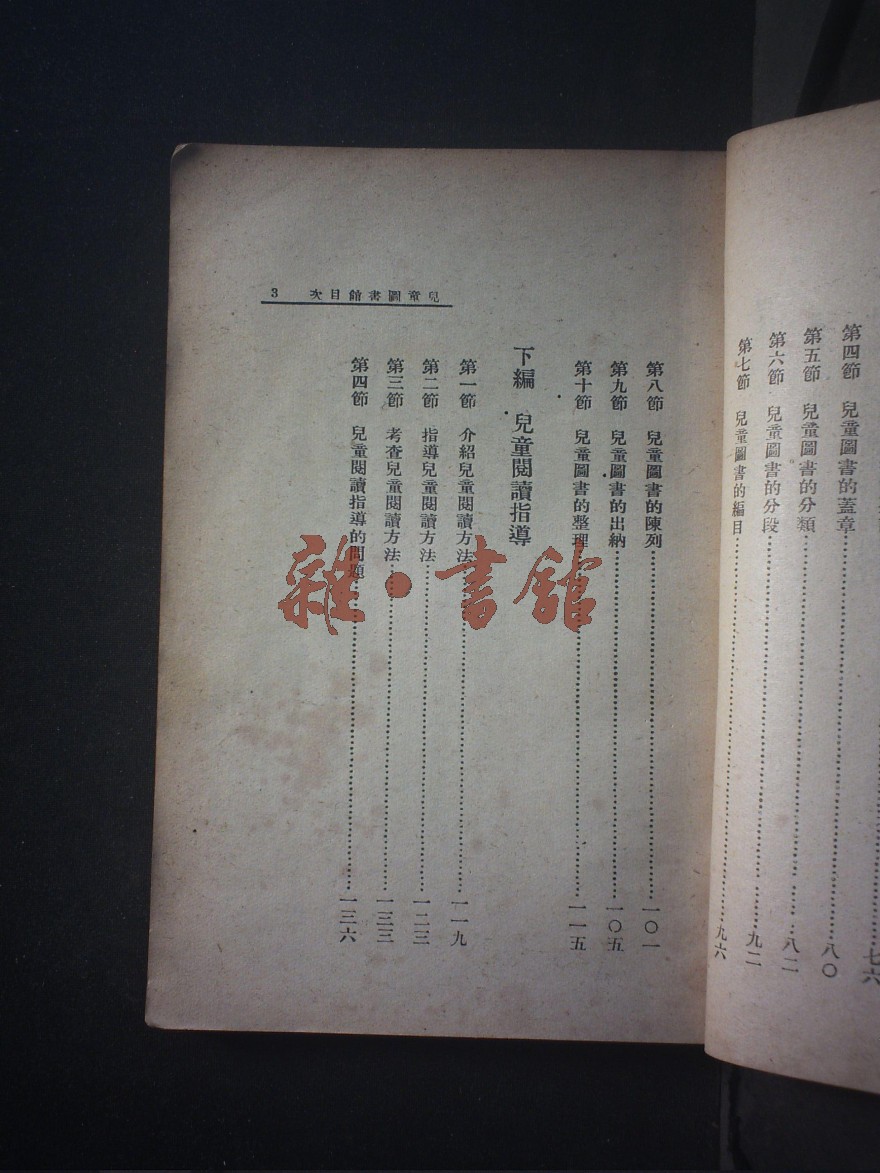 七六
第四節　兒童圖書的蓋章……………………八〇
第五節　兒童圖書的分類……………………八二
第六節　兒童圖書的分段……………………九二
第七節　兒童圖書的編目……………………九六
兒童圖書館目次　3
第八節　兒童圖書的陳列……………………一〇一
第九節　兒童圖書的出納……………………一〇五
第十節　兒童圖書的整理……………………一一五
下編　兒童閱讀指導
第一節　介紹兒童閱讀方法……………………一一九
第二節　指導兒童閱讀方法……………………一二三
第三節　考查兒童閱讀方法……………………一三三
第四節　兒童閱讀指導的問題……………………一三六
雜·書館